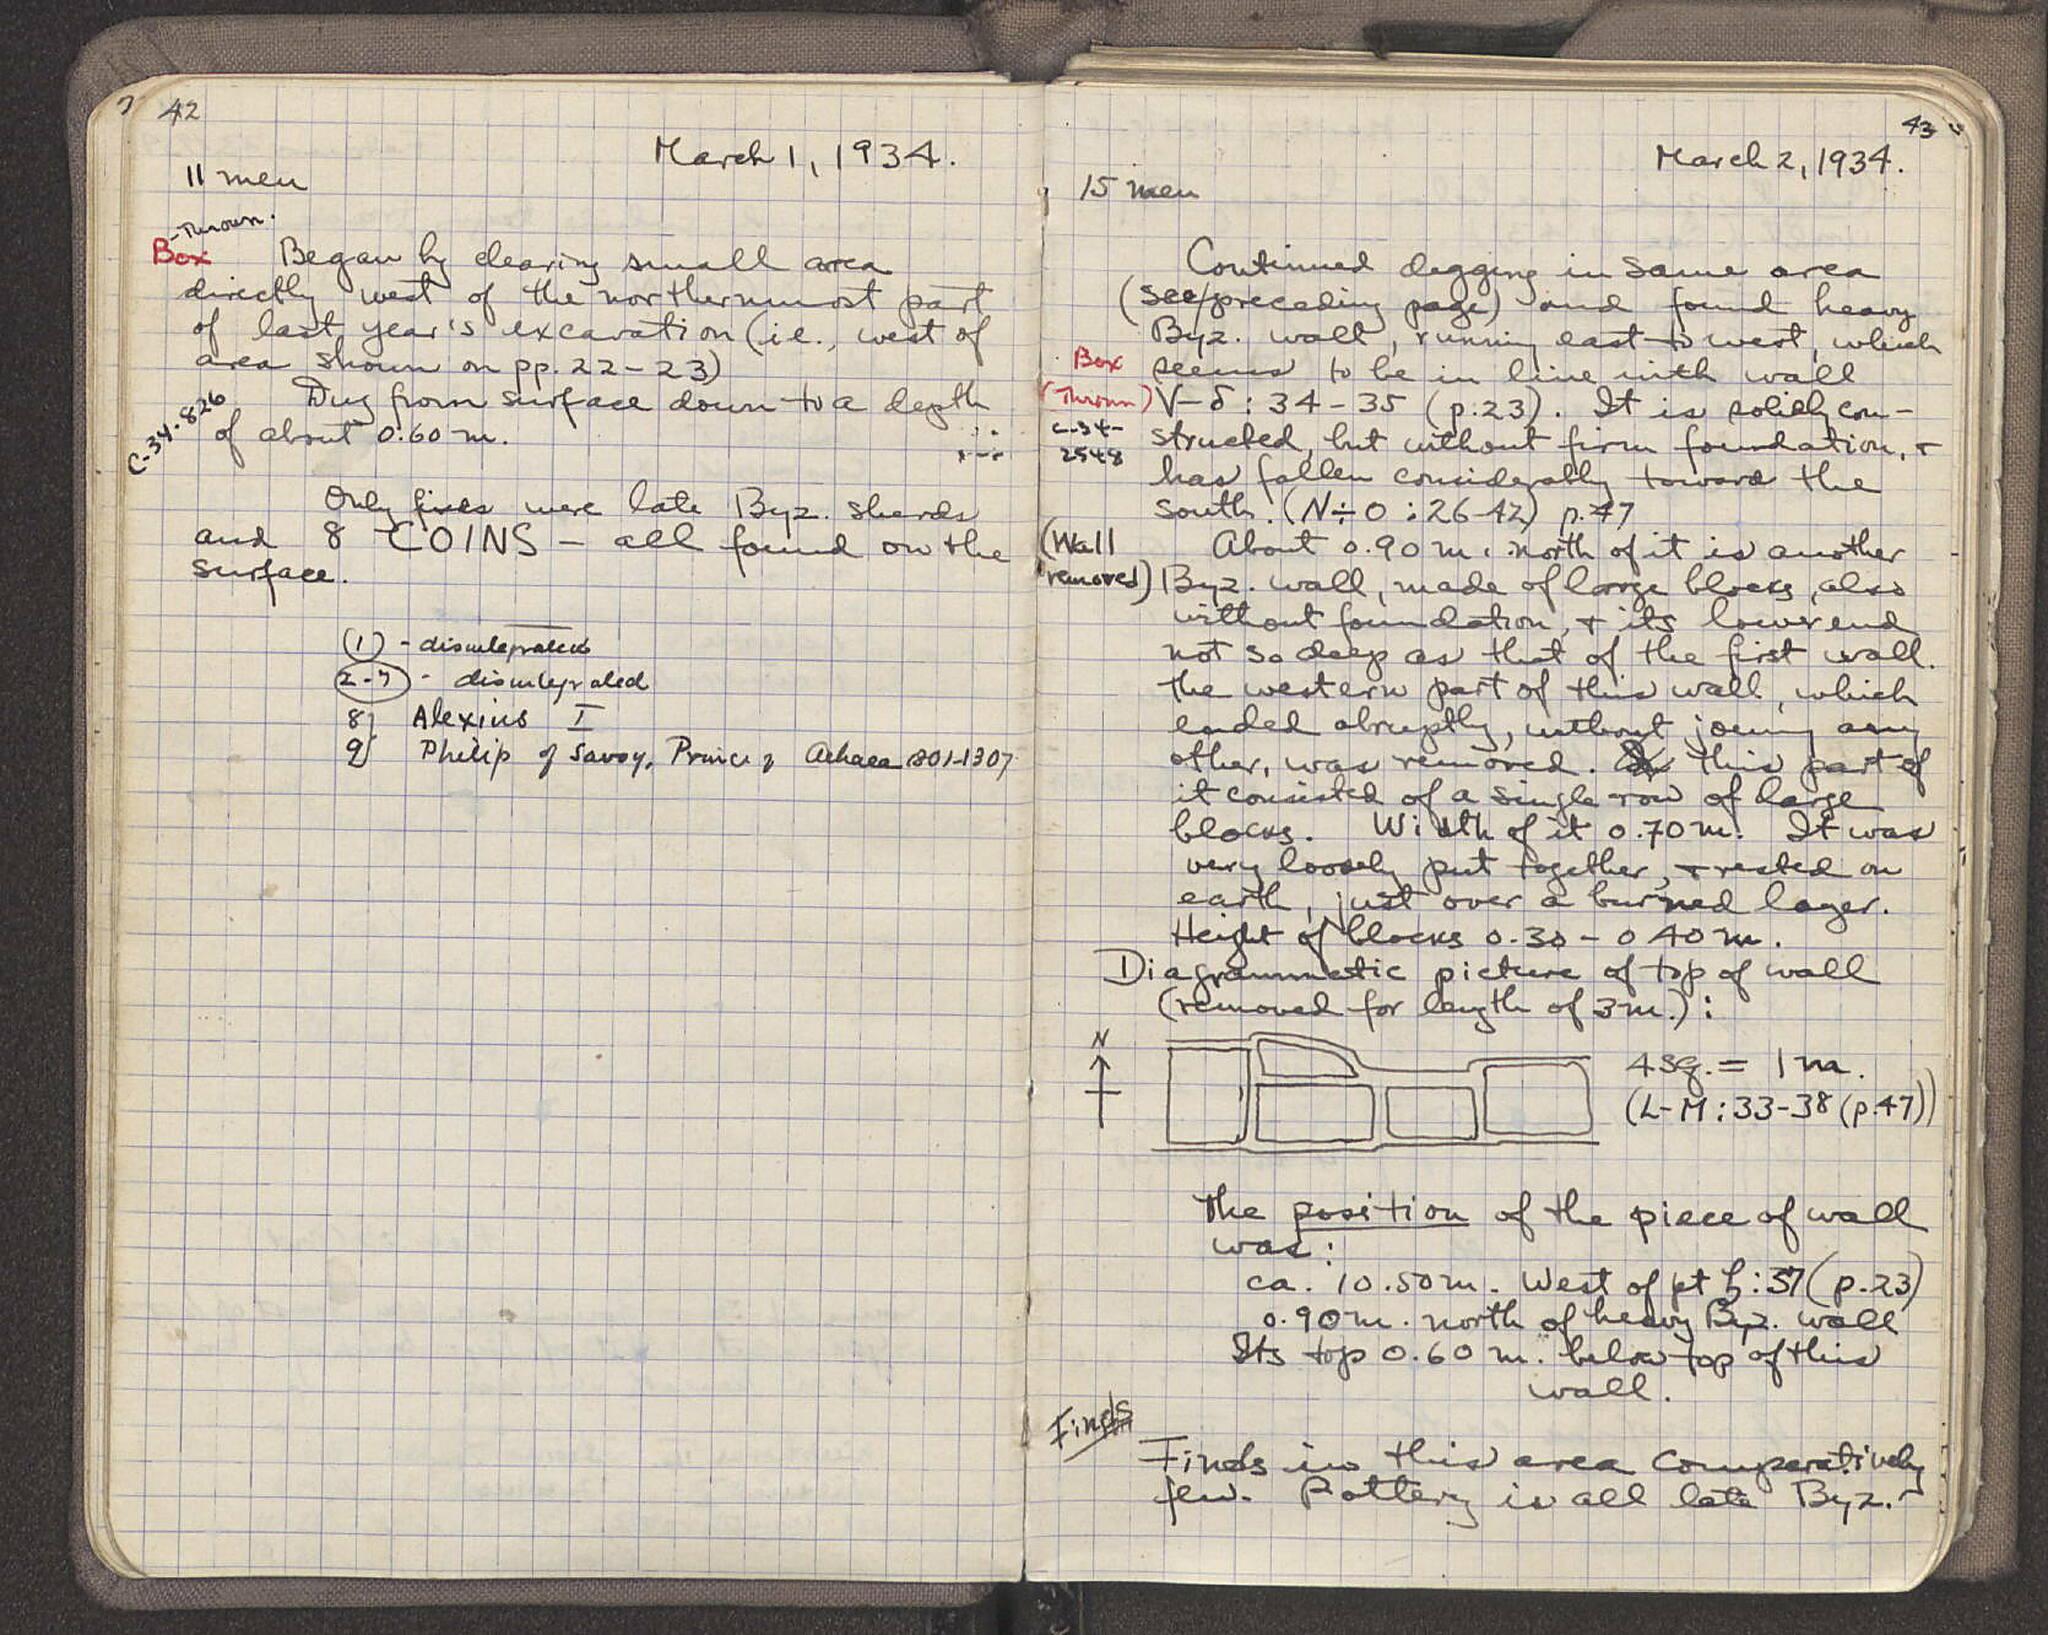 42
March 1, 1934.
11 men
- Thrown.
Box
Began by clearing small area
directly west of the northernmost part
of last year's excavation (i.e., west of
area shown on pp. 22-23)
C-34-826
Dug from surface down to a depth
of about 0.60 m.
Only finds were late Byz. sherds
and 8 COINS - all found on the
surface.
(1) - disintegrated
2-7 - disintegrated
8) Alexius I
9) Philip of Savoy, Prince of Achaea 1301-1307
43
March 2, 1934.
15 men
Continued digging in same area
(see preceding page) and found heavy
Byz. wall, running east to west, which
Box
seems to be in line with wall
(Thrown)
V-δ : 34-35 (p.23). It is solidly con-
C-34-
2548
structed, but without firm foundation, +
has fallen considerably toward the
south. (N÷O : 26-42) p.47
(Wall
removed)
About 0.90 m. north of it is another
Byz. wall, made of large blocks, also
without foundation, + its lower end
not so deep as that of the first wall.
the western part of this wall, which
ended abruptly, without joining any
other, was removed. this part of
it consisted of a single row of large
blocks. Width of it 0.70 m. It was
very loosely put together, + rested on
earth, just over a burned layer.
Height of blocks 0.30 - 0.40 m.
Diagrammatic picture of top of wall
(removed for length of 3 m.) :
N
4 sq. = 1 m.
(L-M : 33-38 (p.47))
The position of the piece of wall
was :
ca. 10.50 m. West of pt : 37 (p.23)
0.90 m. north of heavy Byz. wall
Its top 0.60 m. below top of this
wall.
Finds
Finds in this area comparatively
few. Pottery is all late Byz.